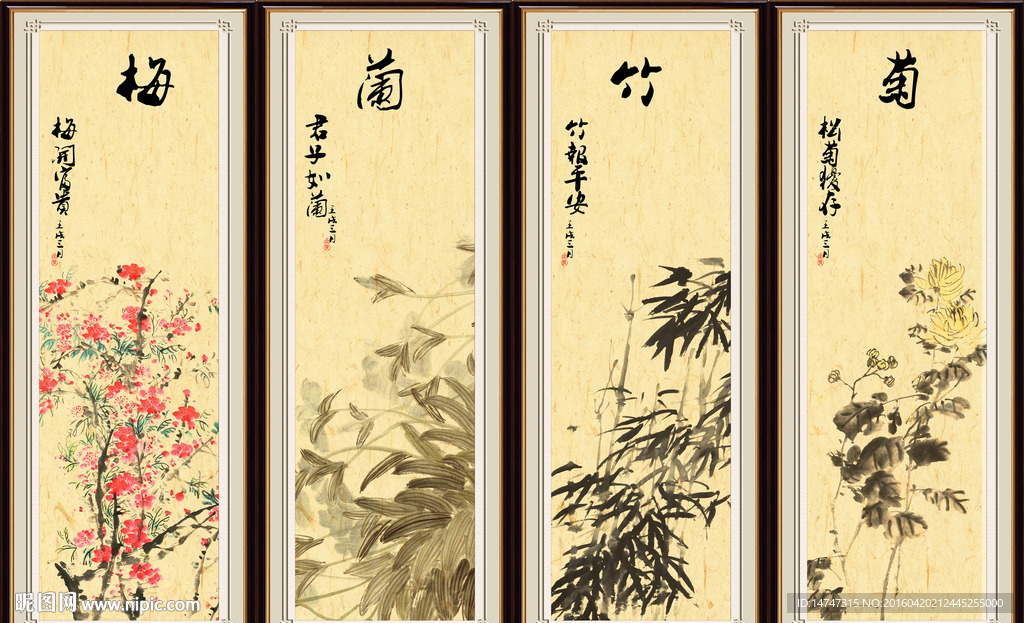 梅
梅開富貴
壬戌三月
蘭
君子如蘭
壬戌三月
竹
竹報平安
壬戌三月
菊
松菊猶存
壬戌三月
昵图网 www.nipic.com
ID:14747315 NO:20160420212445255000